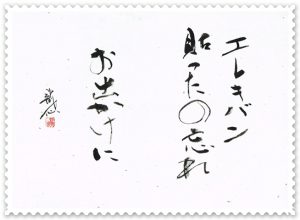 エレキバン
貼ったの忘れ
お出かけに